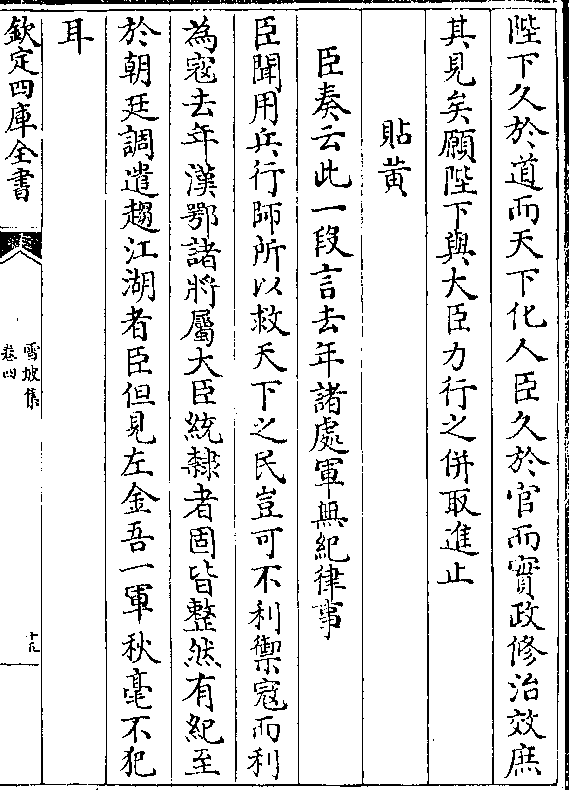 陛下久於道而天下化人臣久於官而實政修治效庶
其見矣願陛下與大臣力行之併取進止
貼黄
臣奏云此一段言去年諸處軍無紀律事
臣聞用兵行師所以救天下之民豈可不利禦寇而利
為寇去年漢鄂諸將屬大臣統隸者固皆整然有紀至
於朝廷調遣趨江湖者臣但見左金吾一軍秋毫不犯
耳
欽定四庫全書
雪坡集
卷四
十九